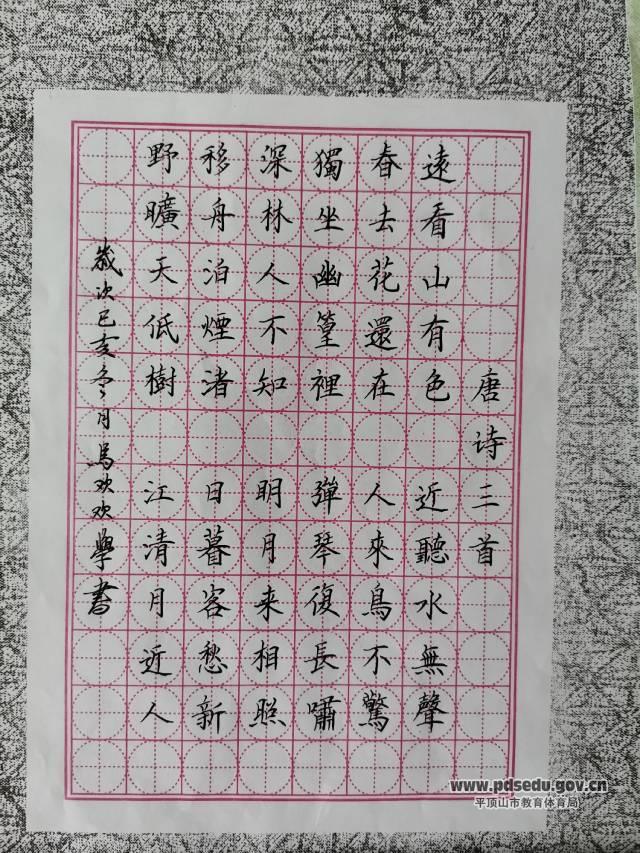 唐诗三首
遠看山有色 近聽水無聲
春去花還在 人來鳥不驚
獨坐幽篁裡 彈琴復長嘯
深林人不知 明月来相照
移舟泊煙渚 日暮客愁新
野曠天低樹 江清月近人
歲次己亥冬月馬欢欢學書
www.pdsedu.gov.cn
平顶山市教育体育局